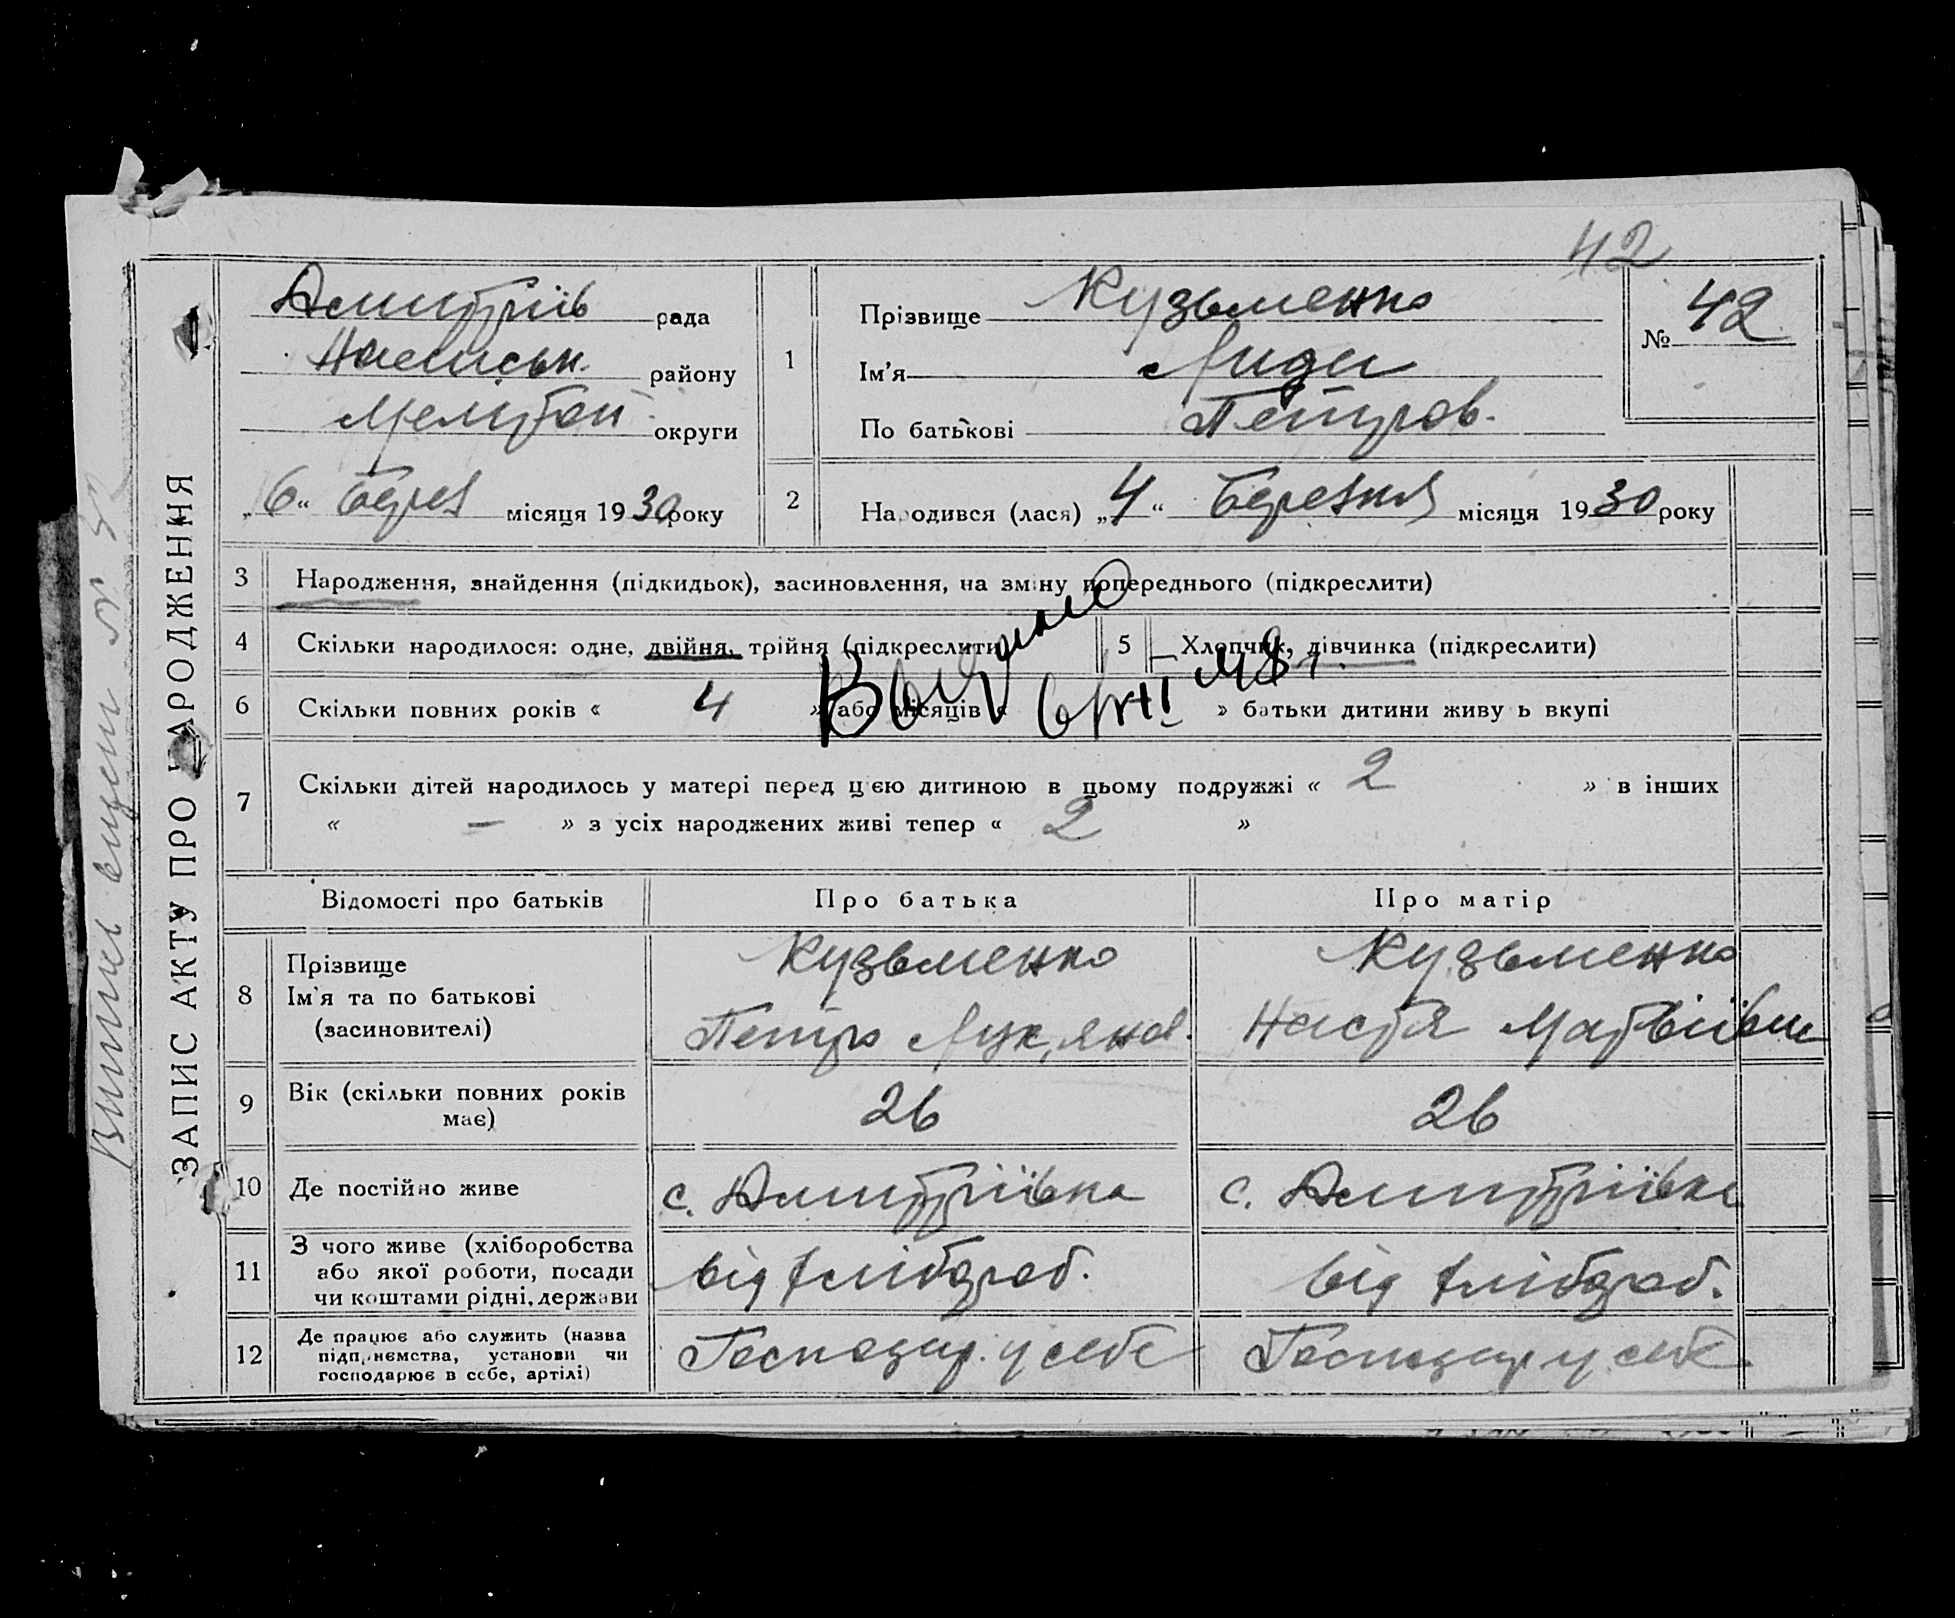 42
ЗАПИС АКТУ ПРО НАРОДЖЕННЯ
Дмитріїв рада
району
Мелітоп. округи
„6“ берез місяця 1930 року
1
Прізвище Кузьменко
Ім'я Лида
По батькові Петров.
№ 42
2
Народився (лася) „4“ березня місяця 1930 року
3 Народження, знайдення (підкидьок), засиновлення, на зміну попереднього (підкреслити)
4 Скільки народилося: одне, двійня, трійня (підкреслити)
5 Хлопчик, дівчинка (підкреслити)
6 Скільки повних років « 4 » або місяців « » батьки дитини живуть вкупі
7 Скільки дітей народилось у матері перед цією дитиною в цьому подружжі « 2 » в інших
« — » з усіх народжених живі тепер « 2 »
Відомості про батьків Про батька Про матір
8 Прізвище
Ім'я та по батькові
(засиновителі)
Кузьменко
Петро Лук'янов.
Кузьменко
Настя Матвіївна
9 Вік (скільки повних років має) 26 26
10 Де постійно живе с. Дмитріївка с. Дмитріївка
11 З чого живе (хліборобства
або якої роботи, посади
чи коштами рідні, держави
від хлібороб. від хлібороб.
12 Де працює або служить (назва
підприємства, установи чи
господарює в себе, артілі)
Господар. у себе Господар у себе